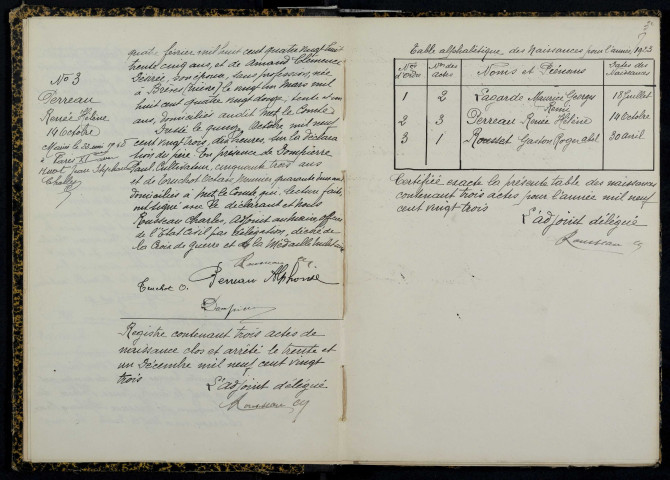 No 3
Perreau
Renée Hélène
14 Octobre
quatre février mil huit cent quatre vingt huit
trente cinq ans, et de Amand Clémence
Désirée, son épouse, sans profession, née
à Brèves le vingt un mars mil
huit cent quatre vingt douze, trente et un
ans, domiciliés audit Met le Comte
Dressé le quinze Octobre mil neuf
cent vingt trois, heures, sur la déclara
tion du père. En présence de Dompierre
Paul, Cultivateur, cinquante trois ans
et de Truchot Octave, quarante ans
domiciliés à Met le Comte qui, lecture faite,
ont signé avec le déclarant et Nous
Rousseau Charles, Adjoint au maire, officier
de l'Etat Civil par délégation, décoré de
la Croix de Guerre et de la Médaille militaire
Rousseau
Truchot O. Perreau Alphonse
Dompierre
Registre contenant trois actes de
naissance clos et arrêté le trente et
un Décembre mil neuf cent vingt
trois
L'adjoint délégué
Rousseau
Table alphabétique des Naissances pour l'année 1923
Nos d'Ordre Nos des Actes Noms et Prénoms Dates des Naissances
1 2 Lagarde Maurice Georges René 18 Juillet
2 3 Perreau Renée Hélène 14 Octobre
3 1 Rousset Gaston Roger Abel 30 avril
Certifiée exacte la présente table des naissances
contenant trois actes pour l'année mil neuf
cent vingt trois
L'adjoint délégué
Rousseau